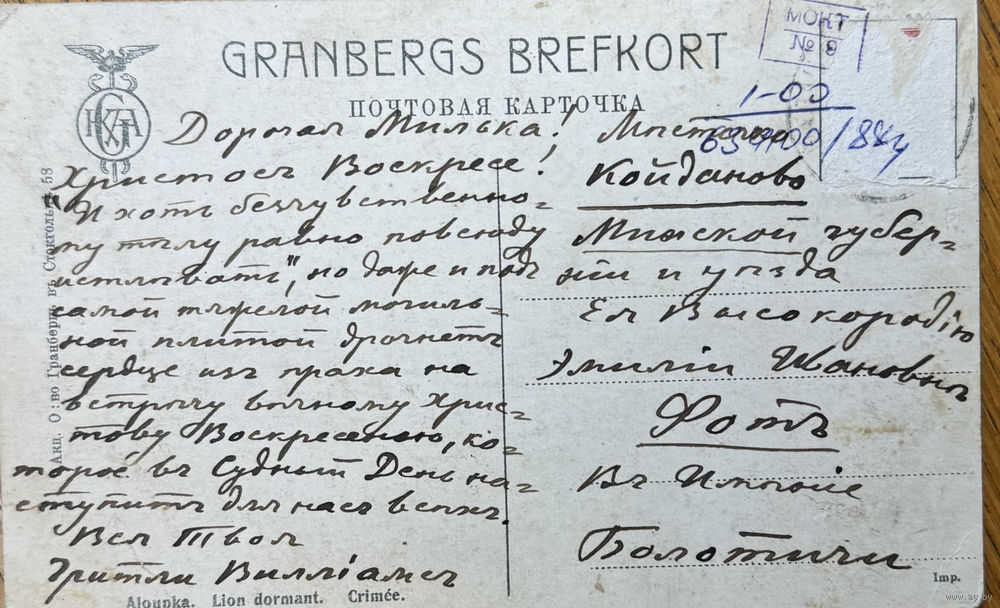 МОКТ
№ 9
GRANBERGS BREFKORT
ПОЧТОВАЯ КАРТОЧКА
1-00
Дорогая Милька!
Христосъ Воскресе!
"И хоть безчувственно-
му тѣлу равно повсюду
истлѣвать", но даже и подъ
самой тяжелой могиль-
ной плитой дрогнетъ
сердце изъ праха на
встрѣчу вѣчному Хрис-
тову Воскресенію, ко-
торое въ Судный День на-
ступитъ для насъ всѣхъ.
Вся Твоя
Гритли Вилліамсъ
Мѣстечко
Койданово
Минской губер-
ніи и уѣзда
Ея Высокородію
Эмиліи Ивановнѣ
Фотъ
Въ Имѣніе
Болотичи
Акц. О:во Гранбергъ въ Стокгольмѣ 58
Aloupka. Lion dormant. Crimée.
Imp.
www.ay.by